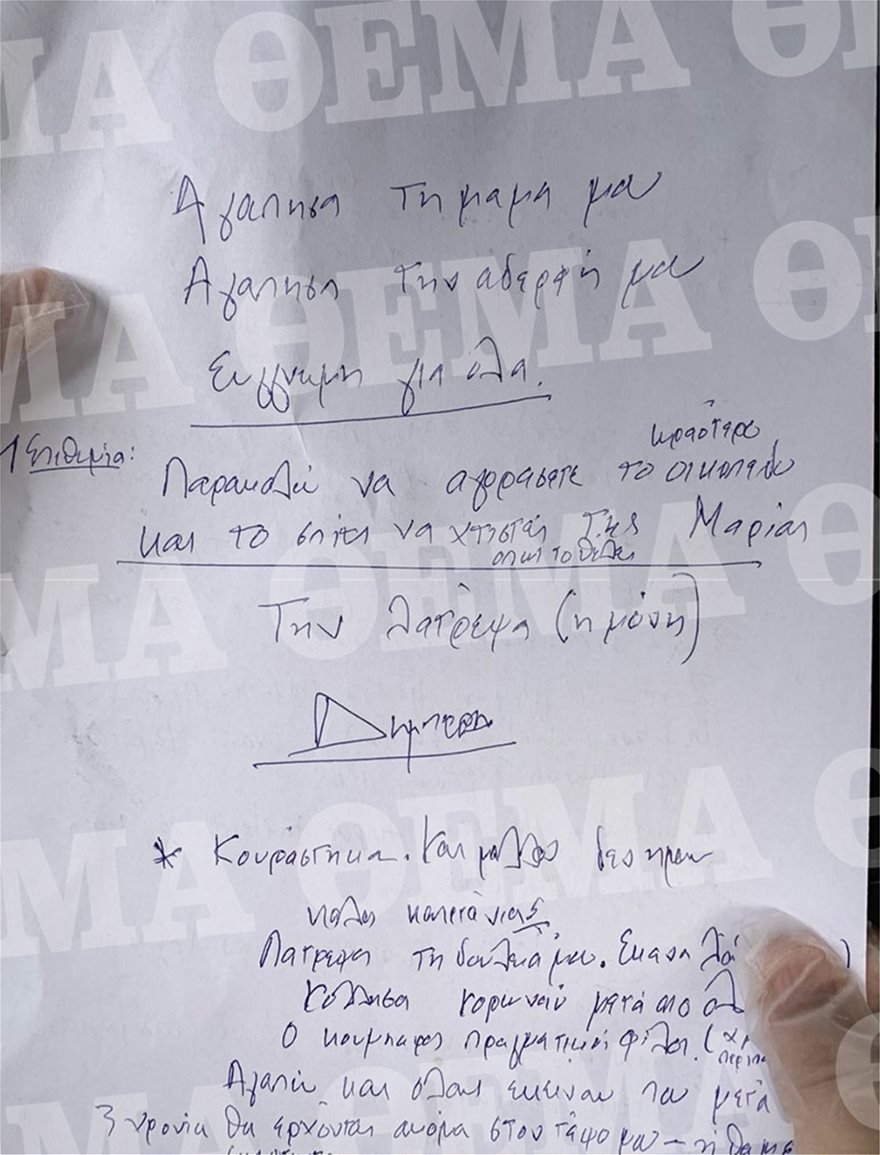 Αγαπησα τη μαμα μου
Αγαπησα την αδερφή μου
Συγγνωμη για όλα.
1 Επιθυμία:
Παρακαλώ να αγορασετε το οικοπεδο
και το σπίτι να χτιστεί της Μαρίας
οπως το θέλει
Την λατρεψα (η μόνη)
Δημητρης
* Κουράστηκα. Και μαλλον δεν ημουν
καλος καπετάνιος
Λατρεψα τη δουλειά μου. Εκανα λά
Κόλλησα κορωναϊο μετά απο όλ
Ο κουμπαρος πραγματικός φίλος.
Αγαπώ και όλους εκεινους που μετά
3 χρονια θα ερχόνται ακόμα στον τάφο μου – ή θα με
ΘΕΜΑ